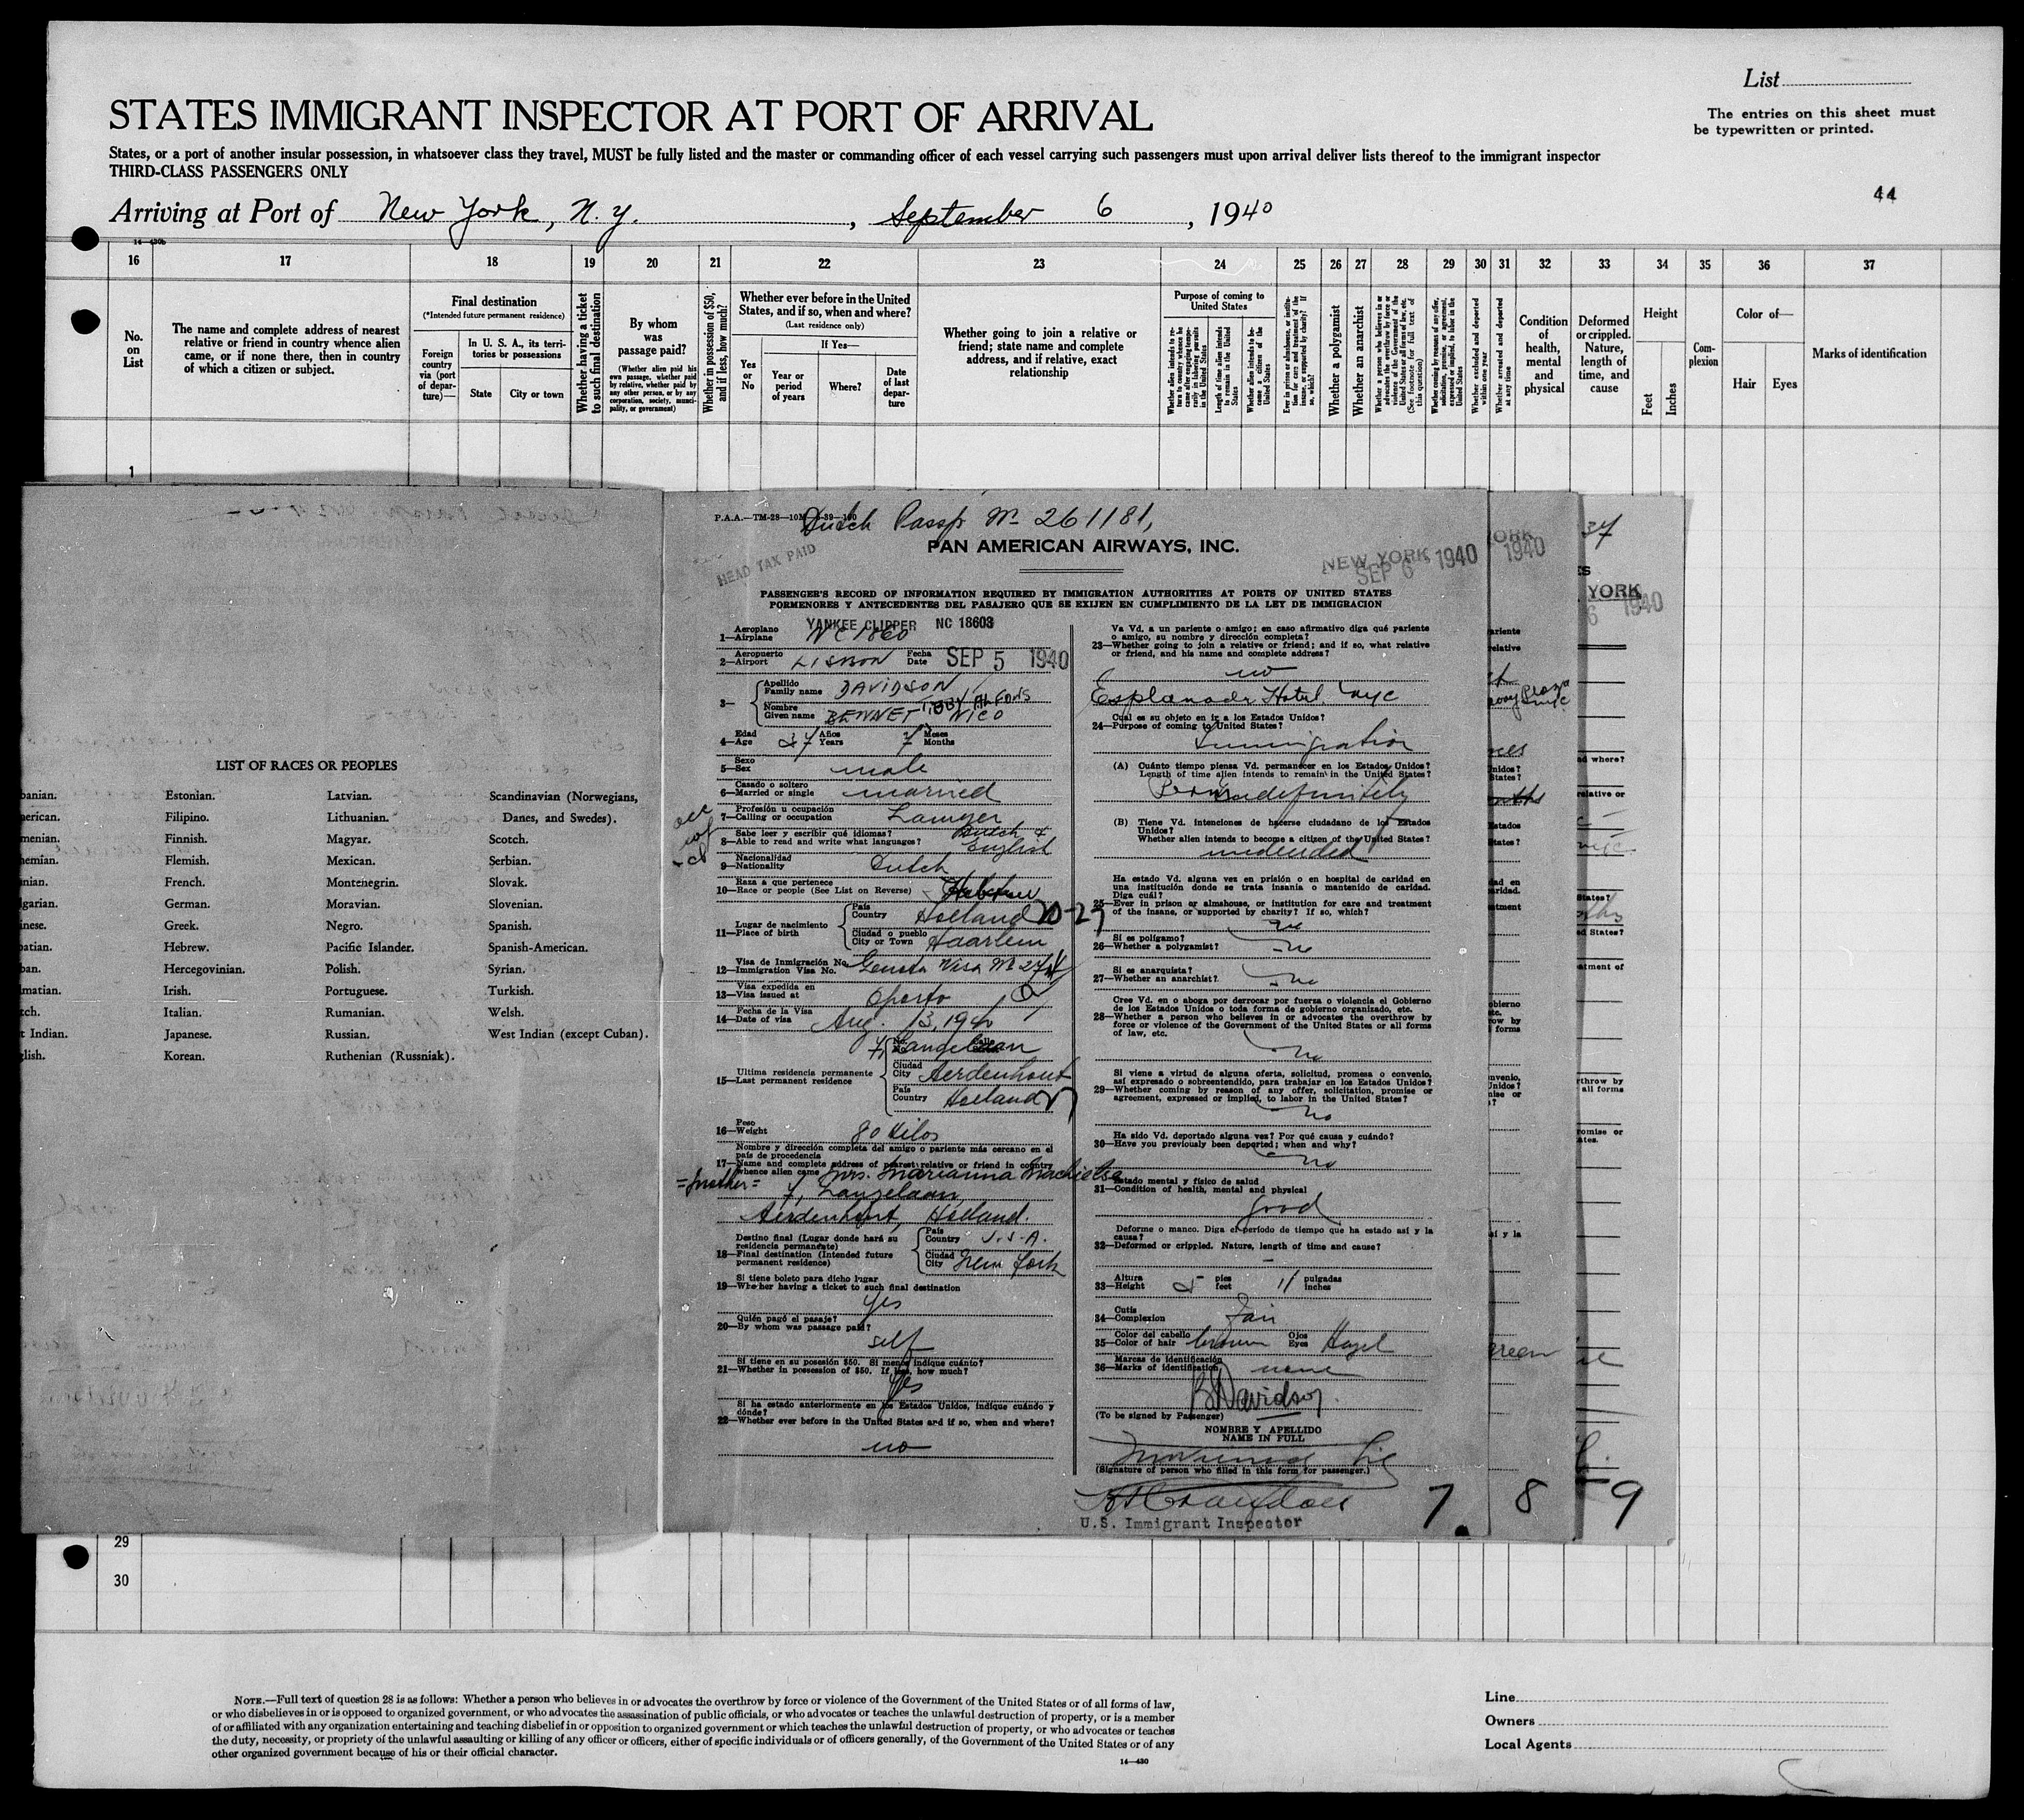 List
The entries on this sheet must
be typewritten or printed.
STATES IMMIGRANT INSPECTOR AT PORT OF ARRIVAL
States, or a port of another insular possession, in whatsoever class they travel, MUST be fully listed and the master or commanding officer of each vessel carrying such passengers must upon arrival deliver lists thereof to the immigrant inspector
THIRD-CLASS PASSENGERS ONLY
44
Arriving at Port of New York, N. Y., September 6, 1940
14—430b
16 17 18 19 20 21 22 23 24 25 26 27 28 29 30 31 32 33 34 35 36 37
No. on List
The name and complete address of nearest relative or friend in country whence alien came, or if none there, then in country of which a citizen or subject.
Final destination
(*Intended future permanent residence)
Foreign country via (port of departure)—
In U. S. A., its territories or possessions
State
City or town
Whether having a ticket to such final destination
By whom was passage paid?
(Whether alien paid his own passage, whether paid by relative, whether paid by any other person, or by any corporation, society, municipality, or government)
Whether in possession of $50, and if less, how much?
Whether ever before in the United States, and if so, when and where?
(Last residence only)
Yes or No
If Yes—
Year or period of years
Where?
Date of last departure
Whether going to join a relative or friend; state name and complete address, and if relative, exact relationship
Purpose of coming to United States
Length of time alien intends to remain in the United States
Whether alien intends to become a citizen of the United States
Whether a polygamist
Whether an anarchist
Whether excluded and deported within one year
Whether arrested and deported at any time
Condition of health, mental and physical
Deformed or crippled. Nature, length of time, and cause
Height
Feet
Inches
Complexion
Color of—
Hair
Eyes
Marks of identification
1
LIST OF RACES OR PEOPLES
Estonian. Latvian. Scandinavian (Norwegians,
Filipino. Lithuanian. Danes, and Swedes).
Finnish. Magyar. Scotch.
Flemish. Mexican. Serbian.
French. Montenegrin. Slovak.
German. Moravian. Slovenian.
Greek. Negro. Spanish.
Hebrew. Pacific Islander. Spanish-American.
Hercegovinian. Polish. Syrian.
Irish. Portuguese. Turkish.
Italian. Rumanian. Welsh.
t Indian. Japanese. Russian. West Indian (except Cuban).
glish. Korean. Ruthenian (Russniak).
Dutch Passp. No 261181,
PAN AMERICAN AIRWAYS, INC.
HEAD TAX PAID
NEW YORK
SEP 6 1940
PASSENGER'S RECORD OF INFORMATION REQUIRED BY IMMIGRATION AUTHORITIES AT PORTS OF UNITED STATES
PORMENORES Y ANTECEDENTES DEL PASAJERO QUE SE EXIJEN EN CUMPLIMIENTO DE LA LEY DE IMMIGRACION
YANKEE CLIPPER NC 18603
Aeroplano
1—Airplane NC 1860
Aeropuerto Fecha
2—Airport LISBON Date SEP 5 1940
3—
Apellido
Family name DAVIDSON
Nombre
Given name BENNET NICO
Edad Años Meses
4—Age 37 Years 7 Months
Sexo
5—Sex male
Casado o soltero
6—Married or single married
Profesión u ocupación
7—Calling or occupation Lawyer
Sabe leer y escribir qué idiomas?
8—Able to read and write what languages? Dutch & English
Nacionalidad
9—Nationality Dutch
Raza a que pertenece
10—Race or people (See List on Reverse) Hebrew
Lugar de nacimiento
11—Place of birth
País
Country Holland
Ciudad o pueblo
City or Town Haarlem
Visa de Inmigración No.
12—Immigration Visa No.
Visa expedida en
13—Visa issued at Oporto
Fecha de la Visa
14—Date of visa Aug. 13, 1940
Ultima residencia permanente
15—Last permanent residence
Ciudad
City Aerdenhout
País
Country Holland
Peso
16—Weight 80 kilos
Nombre y dirección completa del amigo o pariente más cercano en el
país de procedencia
17—Name and complete address of nearest relative or friend in country
whence alien came Mrs. Marianna
=mother= 7, Langelaan,
Aerdenhout, Holland.
Destino final (Lugar donde hará su
residencia permanente)
18—Final destination (Intended future
permanent residence)
País
Country U.S.A.
Ciudad
City New York
Si tiene boleto para dicho lugar
19—Whether having a ticket to such final destination
Yes
Quién pagó el pasaje?
20—By whom was passage paid?
self
Si tiene en su posesión $50. Si menos indique cuánto?
21—Whether in possession of $50. If less, how much?
Yes
Si ha estado anteriormente en los Estados Unidos, indique cuándo y
dónde?
22—Whether ever before in the United States and if so, when and where?
no
Va Vd. a un pariente o amigo; en caso afirmativo diga qué pariente
o amigo, su nombre y dirección completa?
23—Whether going to join a relative or friend; and if so, what relative
or friend, and his name and complete address?
no
Esplanade Hotel. nyc
Cual es su objeto en ir a los Estados Unidos?
24—Purpose of coming to United States?
Immigration
(A) Cuánto tiempo piensa Vd. permanecer en los Estados Unidos?
Length of time alien intends to remain in the United States?
indefinitely
(B) Tiene Vd. intenciones de hacerse ciudadano de los Estados
Unidos?
Whether alien intends to become a citizen of the United States?
undecided
Ha estado Vd. alguna vez en prisión o en hospital de caridad en
una institución donde se trata insania o mantenido de caridad.
Diga cuál?
25—Ever in prison or almshouse, or institution for care and treatment
of the insane, or supported by charity? If so, which?
no
Si es polígamo?
26—Whether a polygamist? no
Si es anarquista?
27—Whether an anarchist? no
Cree Vd. en o aboga por derrocar por fuersa o violencia el Gobierno
de los Estados Unidos o toda forma de gobierno organizado, etc.
28—Whether a person who believes in or advocates the overthrow by
force or violence of the Government of the United States or all forms
of law, etc.
no
Si viene a virtud de alguna oferta, solicitud, promesa o convenio,
así expresado o sobreentendido, para trabajar en los Estados Unidos?
29—Whether coming by reason of any offer, solicitation, promise or
agreement, expressed or implied, to labor in the United States?
no
Ha sido Vd. deportado alguna vez? Por qué causa y cuándo?
30—Have you previously been deported; when and why?
no
Estado mental y físico de salud
31—Condition of health, mental and physical
good
Deforme o manco. Diga el período de tiempo que ha estado así y la
causa?
32—Deformed or crippled. Nature, length of time and cause?
-
Altura pies pulgadas
33—Height 5 feet 11 inches
Cutis
34—Complexion Fair
Color del cabello Ojos
35—Color of hair brown Eyes Hazel
Marcas de identificación
36—Marks of identification none
B Davidson.
(To be signed by Passenger)
NOMBRE Y APELLIDO
NAME IN FULL
(Signature of person who filled in this form for passenger.)
U.S. Immigrant Inspector
7. 8 9
29
30
NOTE.—Full text of question 28 is as follows: Whether a person who believes in or advocates the overthrow by force or violence of the Government of the United States or of all forms of law,
or who disbelieves in or is opposed to organized government, or who advocates the assassination of public officials, or who advocates or teaches the unlawful destruction of property, or is a member
of or affiliated with any organization entertaining and teaching disbelief in or opposition to organized government or which teaches the unlawful destruction of property, or who advocates or teaches
the duty, necessity, or propriety of the unlawful assaulting or killing of any officer or officers, either of specific individuals or of officers generally, of the Government of the United States or of any
other organized government because of his or their official character.
14—430
Line
Owners
Local Agents